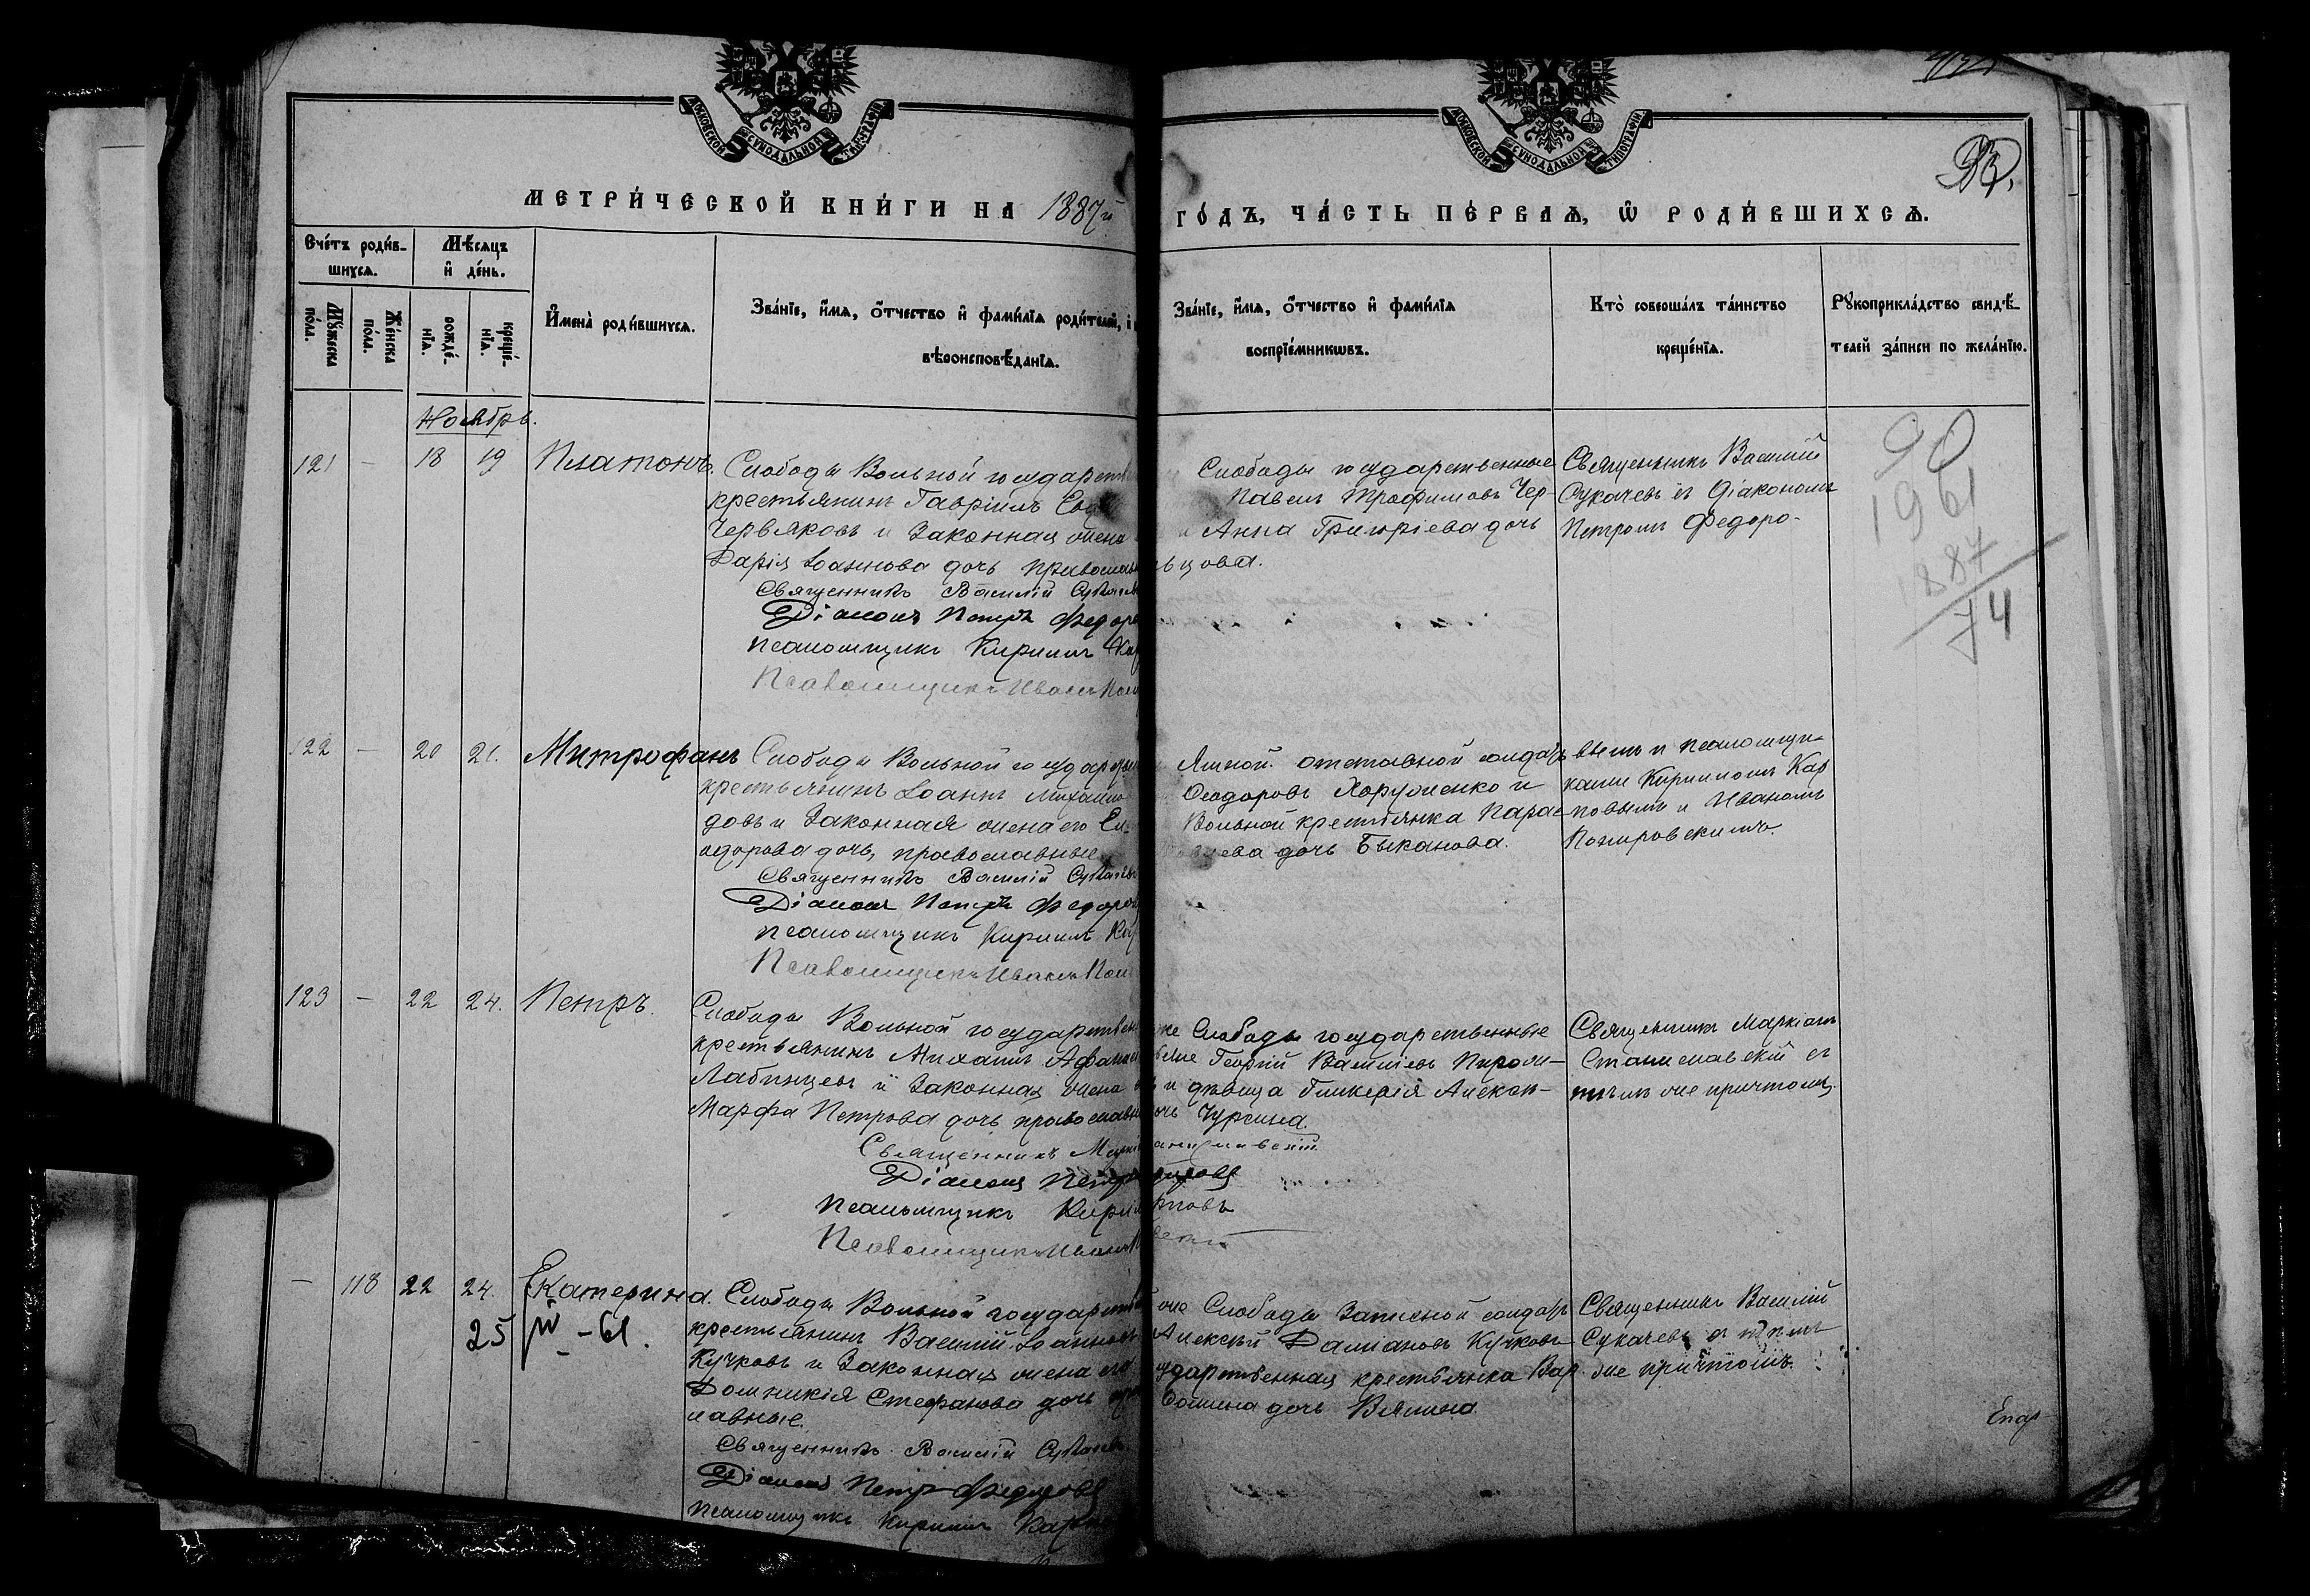 МОСКОВСКОЙ СѴНОДАЛЬНОЙ ТИПОГРАФІИ
МОСКОВСКОЙ СѴНОДАЛЬНОЙ ТИПОГРАФІИ
МЕТРИ́ЧЕСКОЙ КНИ́ГИ НА 1887й
ГО́ДЪ, ЧА́СТЬ ПЕ́РВАѦ, Ѡ РОДИ́ВШИХСѦ.
Сче́тъ роди́в-
шихсѧ.
Мꙋжеска по́ла.
Же́нска по́ла.
Мѣ́сѧцъ
и҆ де́нь.
рожде́-
нїѧ.
креще́-
нїѧ.
И҆мена̀ роди́вшихсѧ.
Зва́нїе, и҆́мѧ, ѻ҆́тчество и҆ фами́лїѧ роди́телей, и҆
вѣроисповѣ́данїѧ.
Зва́нїе, и҆́мѧ, ѻ҆́тчество и҆ фами́лїѧ
воспрїе́мникѡвъ.
Кто̀ соверша́лъ та́инство
креще́нїѧ.
Рꙋкоприкла́дство свидѣ́-
телей за́писи по жела́нїю.
Ноябрь.
121 — 18 19 Платонъ.
Слободы Вольной государств
крестьянинъ Гавріилъ
Червяковъ и законная жена
Дарія Іоаннова дочь православ
Священникъ Василій Сукачевъ
Діаконъ Петръ Федоро
Псаломщикъ Кириллъ Кар
Псаломщикъ Иванъ Пот
Слободы государственные
Павелъ Трофимовъ Чер-
и Анна Григоріева дочь
ьцова.
Священникъ Василій
Сукачевъ съ Діакономъ
Петромъ Федоро-
90
1961
1887
74
122 — 20 21. Митрофанъ
Слободы Вольной государствен
крестьянинъ Іоаннъ Михайло
довъ и законная жена его Ев
одорова дочь, православные
Священникъ Василій Сукачевъ
Діаконъ Петръ Федоров
Псаломщикъ Кириллъ Кар
Псаломщикъ Иванъ Пот
Ямной. отставной солдатъ
Ѳеодоровъ Хорученко и
Вольной крестьянка Парас-
ева дочь Быканова.
вымъ и псаломщи-
ками Кирилломъ Кар
повымъ и Иваномъ
123 — 22 24. Петръ.
Слободы Вольной государствен
крестьянинъ Михаилъ Афанас
Лабынцевъ и законная жена
Марфа Петрова дочь православн
Священникъ Маркі
Діаконъ Петръ
Псаломщикъ Кирил
Псаломщикъ Иванъ
же Слободы государственные
Георгій Васильевъ
и дѣвица Гликерія Алексан-
очь Чурсина.
аниславскій
рповъ
Священникъ Маркіанъ
Станиславскій съ
тѣмъ же причтомъ.
— 118 22 24. Екатерина.
25/IV – 61.
Слободы Вольной государств
крестьянинъ Василій Іоанновъ
Кучковъ и законная жена его
Домникія Стефанова дочь пра
лавные.
Священникъ Василій Сукачевъ
Діаконъ Петръ Федоровъ
Псаломщикъ Кириллъ Карпо
же Слободы Записной солдатъ
Алексѣй Даміановъ Кучковъ
ударственная крестьянка Вар
дочь
Священникъ Василій
Сукачевъ съ тѣмъ
же причтомъ.
Епар